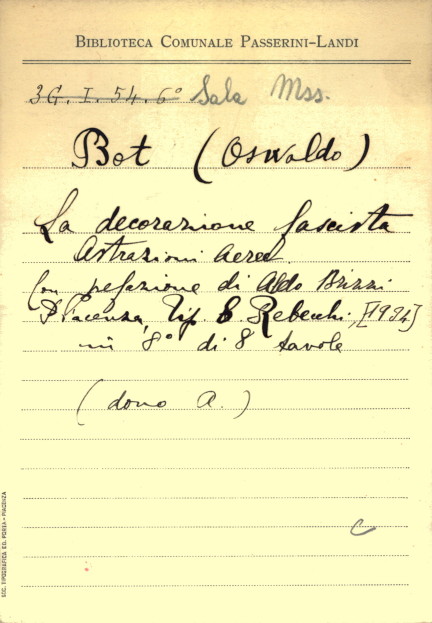 BIBLIOTECA COMUNALE PASSERINI-LANDI
3G. I. 54. 6° Sala Mss.
Bot (Oswaldo)
La decorazione fascista
Astrazioni aeree.
Con prefazione di Aldo Brizzi
Piacenza, Tip. E. Rebecchi, [1934]
in 8° di 8 tavole
(dono A.)
C
SOC. TIPOGRAFICA ED. PORTA - PIACENZA